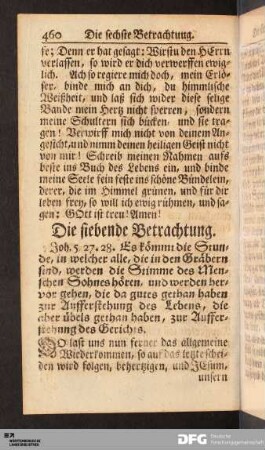 460 Die sechste Betrachtung.
se; Denn er hat gesagt: Wirstu den HErrn
verlassen, so wird er dich verwerffen ewig-
lich. Ach so regiere mich doch, mein Erlö-
ser, binde mich an dich, du himmlische
Weißheit, und laß sich wider diese selige
Bande mein Hertz nicht sperren, sondern
meine Schultern sich bücken, und sie tra-
gen! Verwirff mich nicht von deinem An-
gesicht, und nimm deinen heiligen Geist nicht
von mir! Schreib meinen Nahmen aufs
beste ins Buch des Lebens ein, und binde
meine Seele fein feste ins schöne Bündelein,
derer, die im Himmel grünen, und für dir
leben frey, so will ich ewig rühmen, und sa-
gen: GOtt ist treu! Amen!
Die siebende Betrachtung.
Joh. 5. 27. 28. Es kömmt die Stun-
de, in welcher alle, die in den Gräbern
sind, werden die Stimme des Men-
schen Sohnes hören, und werden her-
vor gehen, die da gutes gethan haben
zur Aufferstehung des Lebens, die
aber übels gethan haben, zur Auffer-
stehung des Gerichts.
SO last uns nun ferner das allgemeine
Wiederkommen, so auf das letzte schei-
den wird folgen, behertzigen, und JEsum,
unsern
DFG